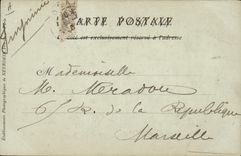 CARTE POSTALE
est exclusivement réservé à l'adresse
Mademoiselle
M. Meradou
6, R. de la République
Marseille
Etablissements Photographiques de NEURDEIN